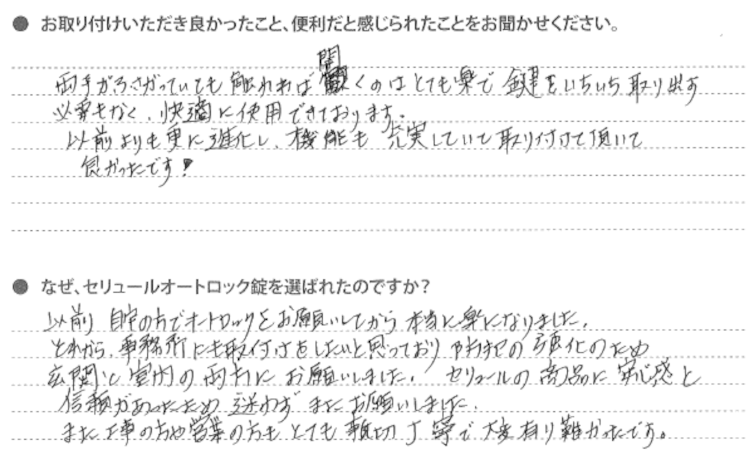 ● お取り付けいただき良かったこと、便利だと感じられたことをお聞かせください。
両手がふさがっていても触れれば開くのはとても楽で鍵をいちいち取り出す
必要もなく、快適に使用できております。
以前よりも更に進化し、機能も充実していて取り付けて頂いて
良かったです!
● なぜ、セリュールオートロック錠を選ばれたのですか?
以前 自宅の方でオートロックをお願いしてから本当に楽になりました。
それから、事務所にも取付けをしたいと思っており防犯の強化のため
玄関と室内の両方にお願いしました。 セリュールの商品に安心感と
信頼があったため迷わずまたお願いしました。
また工事の方や営業の方もとても親切丁寧で大変有り難かったです。